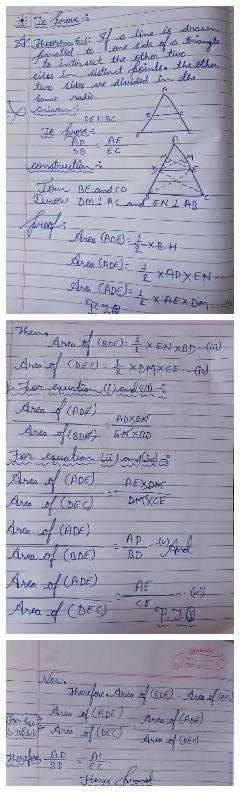 To prove :-
Theorem 6.1: If a line is drawn
parallel to one side of a triangle
to intersect the other two
sides in distinct points, the other
two sides are divided in the
same radio.
Given:-
DE||BC
To prove:-
AD/DB = AE/EC
Construction:-
Join BE and CD
Draw DM⊥AC and EN⊥AB
Proof:-
Area (ADE) = 1/2 × B.H
Area (ADE) = 1/2 × AD × EN
Area (ADE) = 1/2 × AE × DM
P.T.O
Then,
Area of (BDE) = 1/2 × EN × BD - (iii)
Area of (DEC) = 1/2 × DM × CE - (iv)
For equation (i) and (iii) :-
Area of (ADE) / Area of (BDE) = AD×EN / EN×BD
For equation (ii) and (iv) :-
Area of (ADE) / Area of (DEC) = AE×DM / DM×CE
Area of (ADE) / Area of (BDE) = AD/BD - (v) And
Area of (ADE) / Area of (DEC) = AE/CE - (vi)
P.T.O
Now,
Therefore, Area of (BDE) = Area of (DEC)
Area of (ADE) / Area of (BDE) = Area of (ADE) / Area of (DEC)
Therefore, AD/BD = AC/EC
Hence proved